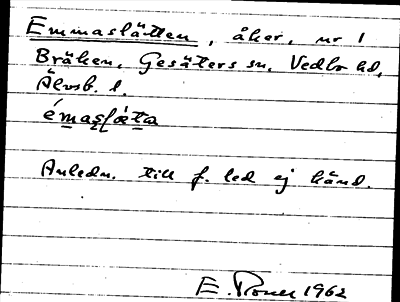 Emmaslätten, åker, nr 1
Bräken, Gesäters sn, Vedbo hd,
Älvsb. l.
émaslæ̀ta
Anledn. till f. led ej känd.
E. 1962